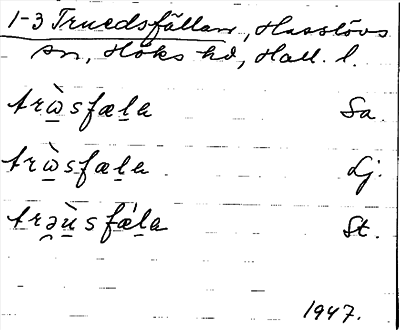 1-3 Truedsfällan, Hasslövs
sn, Höks hd, Hall. l.
trὼ̠sfæl̠a Sa.
trὼ̠sfæl̠a Lj.
trə̯ù̠sfǽl̠a St.
1947.